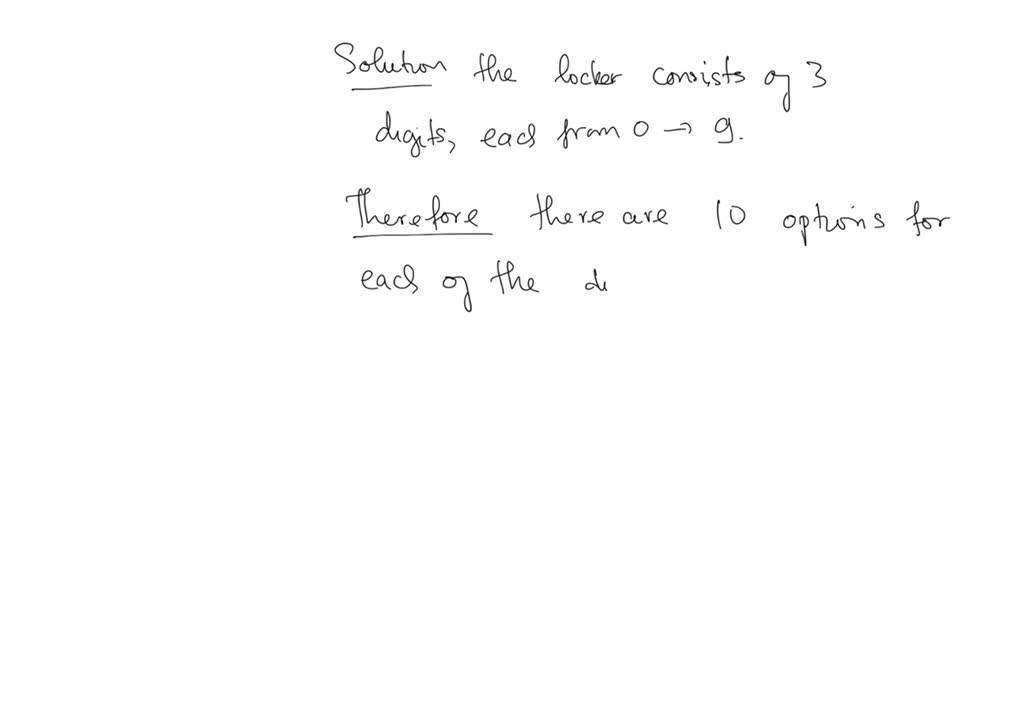 Solution the locker consists of 3
digits, each from 0 → 9.
Therefore there are 10 options for
each of the di